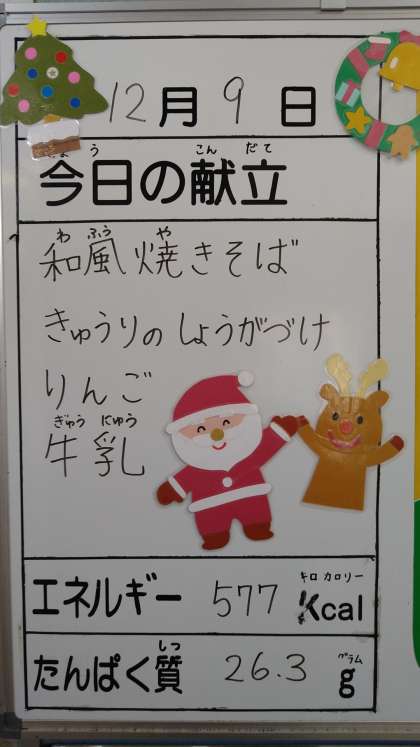 12月9日
きょう こん だて
今日の献立
わ ふう や
和風焼きそば
きゅうりのしょうがづけ
りんご
ぎゅう にゅう
牛乳
キロ カロリー
エネルギー 577 Kcal
しつ グラム
たんぱく質 26.3 g